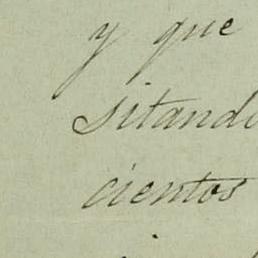 y que
sitand
cientos